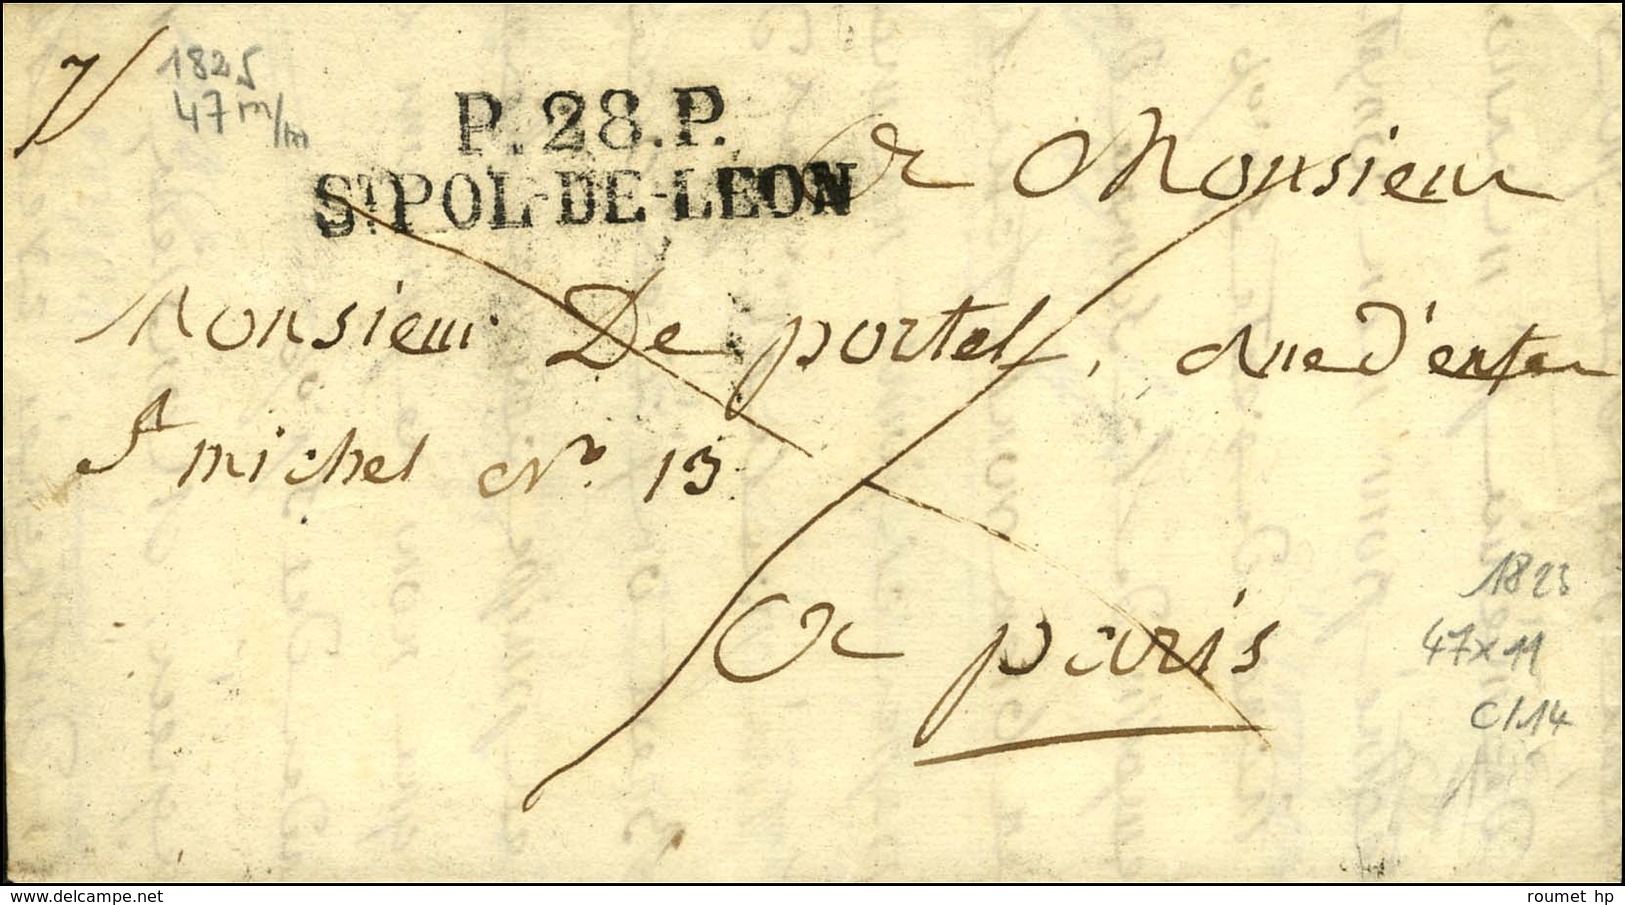 1825
47 m/m
P.28.P.
ST POL-DE-LEON
a Monsieur
Monsieur De portel, rue d'enfer
St michel No. 13
a paris
1823
47x11
C/14
© Delcampe.net
roumet hp